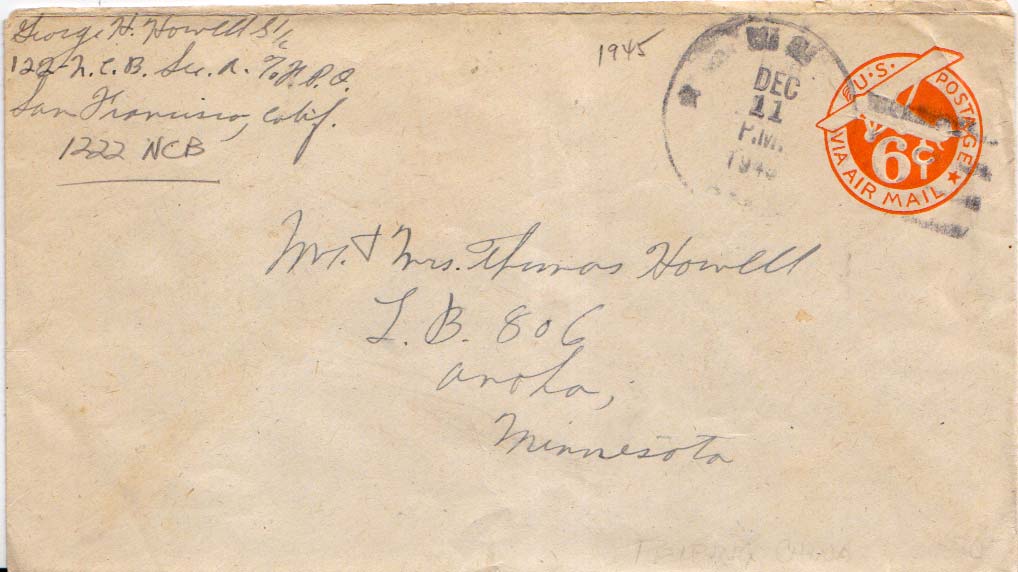 George H. Howell S1/c
122 N.C.B. Sec. A. % F.P.O.
San Francisco, Calif.
1222 NCB
1945
DEC
11
P.M.
194
U.S. POSTAGE
6¢
VIA AIR MAIL
Mr. & Mrs. Thomas Howell
L. B. 806
Anoka,
Minnesota
CHINA